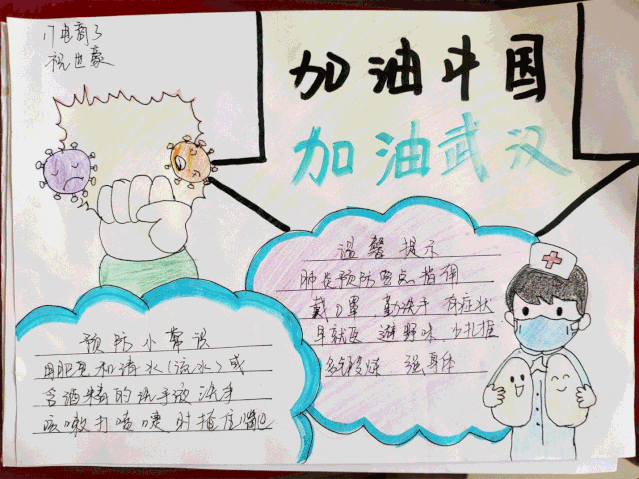 17电商3
祝世豪
加油中国
加油武汉
温馨提示
肺炎预防要点指南
戴口罩 勤洗手 有症状
早就医 避野味 少扎推
多锻炼 强身体
预防小常识
用肥皂和请水(流水)或
含酒精的洗手液洗手
咳嗽打喷嚏时捂住嘴巴